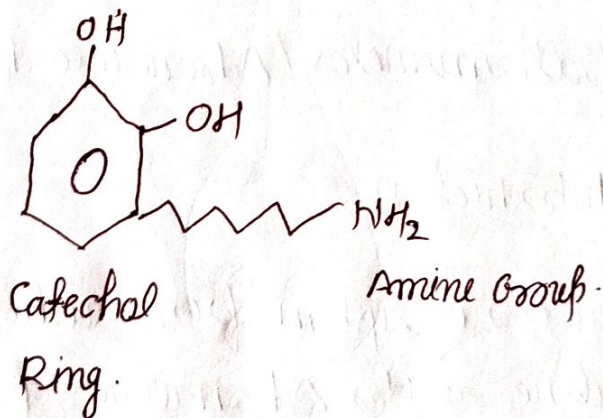 OH
OH
NH₂
Catechol
Ring.
Amine Group.